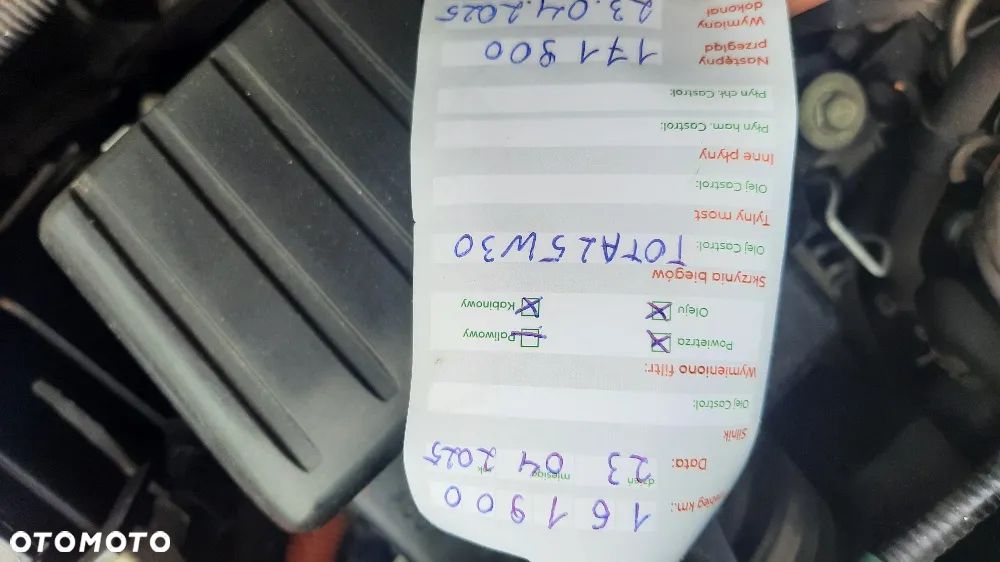 km.: 161900
Data: 23 04 2025
dzień miesiąc rok
Silnik
Olej Castrol:
Wymieniono filtr:
Powietrza Paliwowy
Oleju Kabinowy
Skrzynia biegów
Olej Castrol: TOTAL 5W30
Tylny most
Olej Castrol:
Inne płyny
Płyn ham. Castrol:
Płyn chł. Castrol:
Następny przegląd 171900
Wymiany dokonał 23.04.2025
OTOMOTO